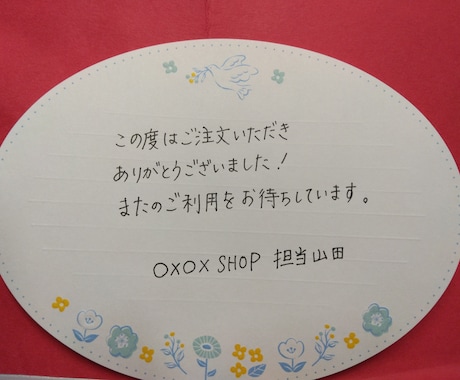 この度はご注文いただき
ありがとうございました!
またのご利用をお待ちしています。
OXOX SHOP 担当山田